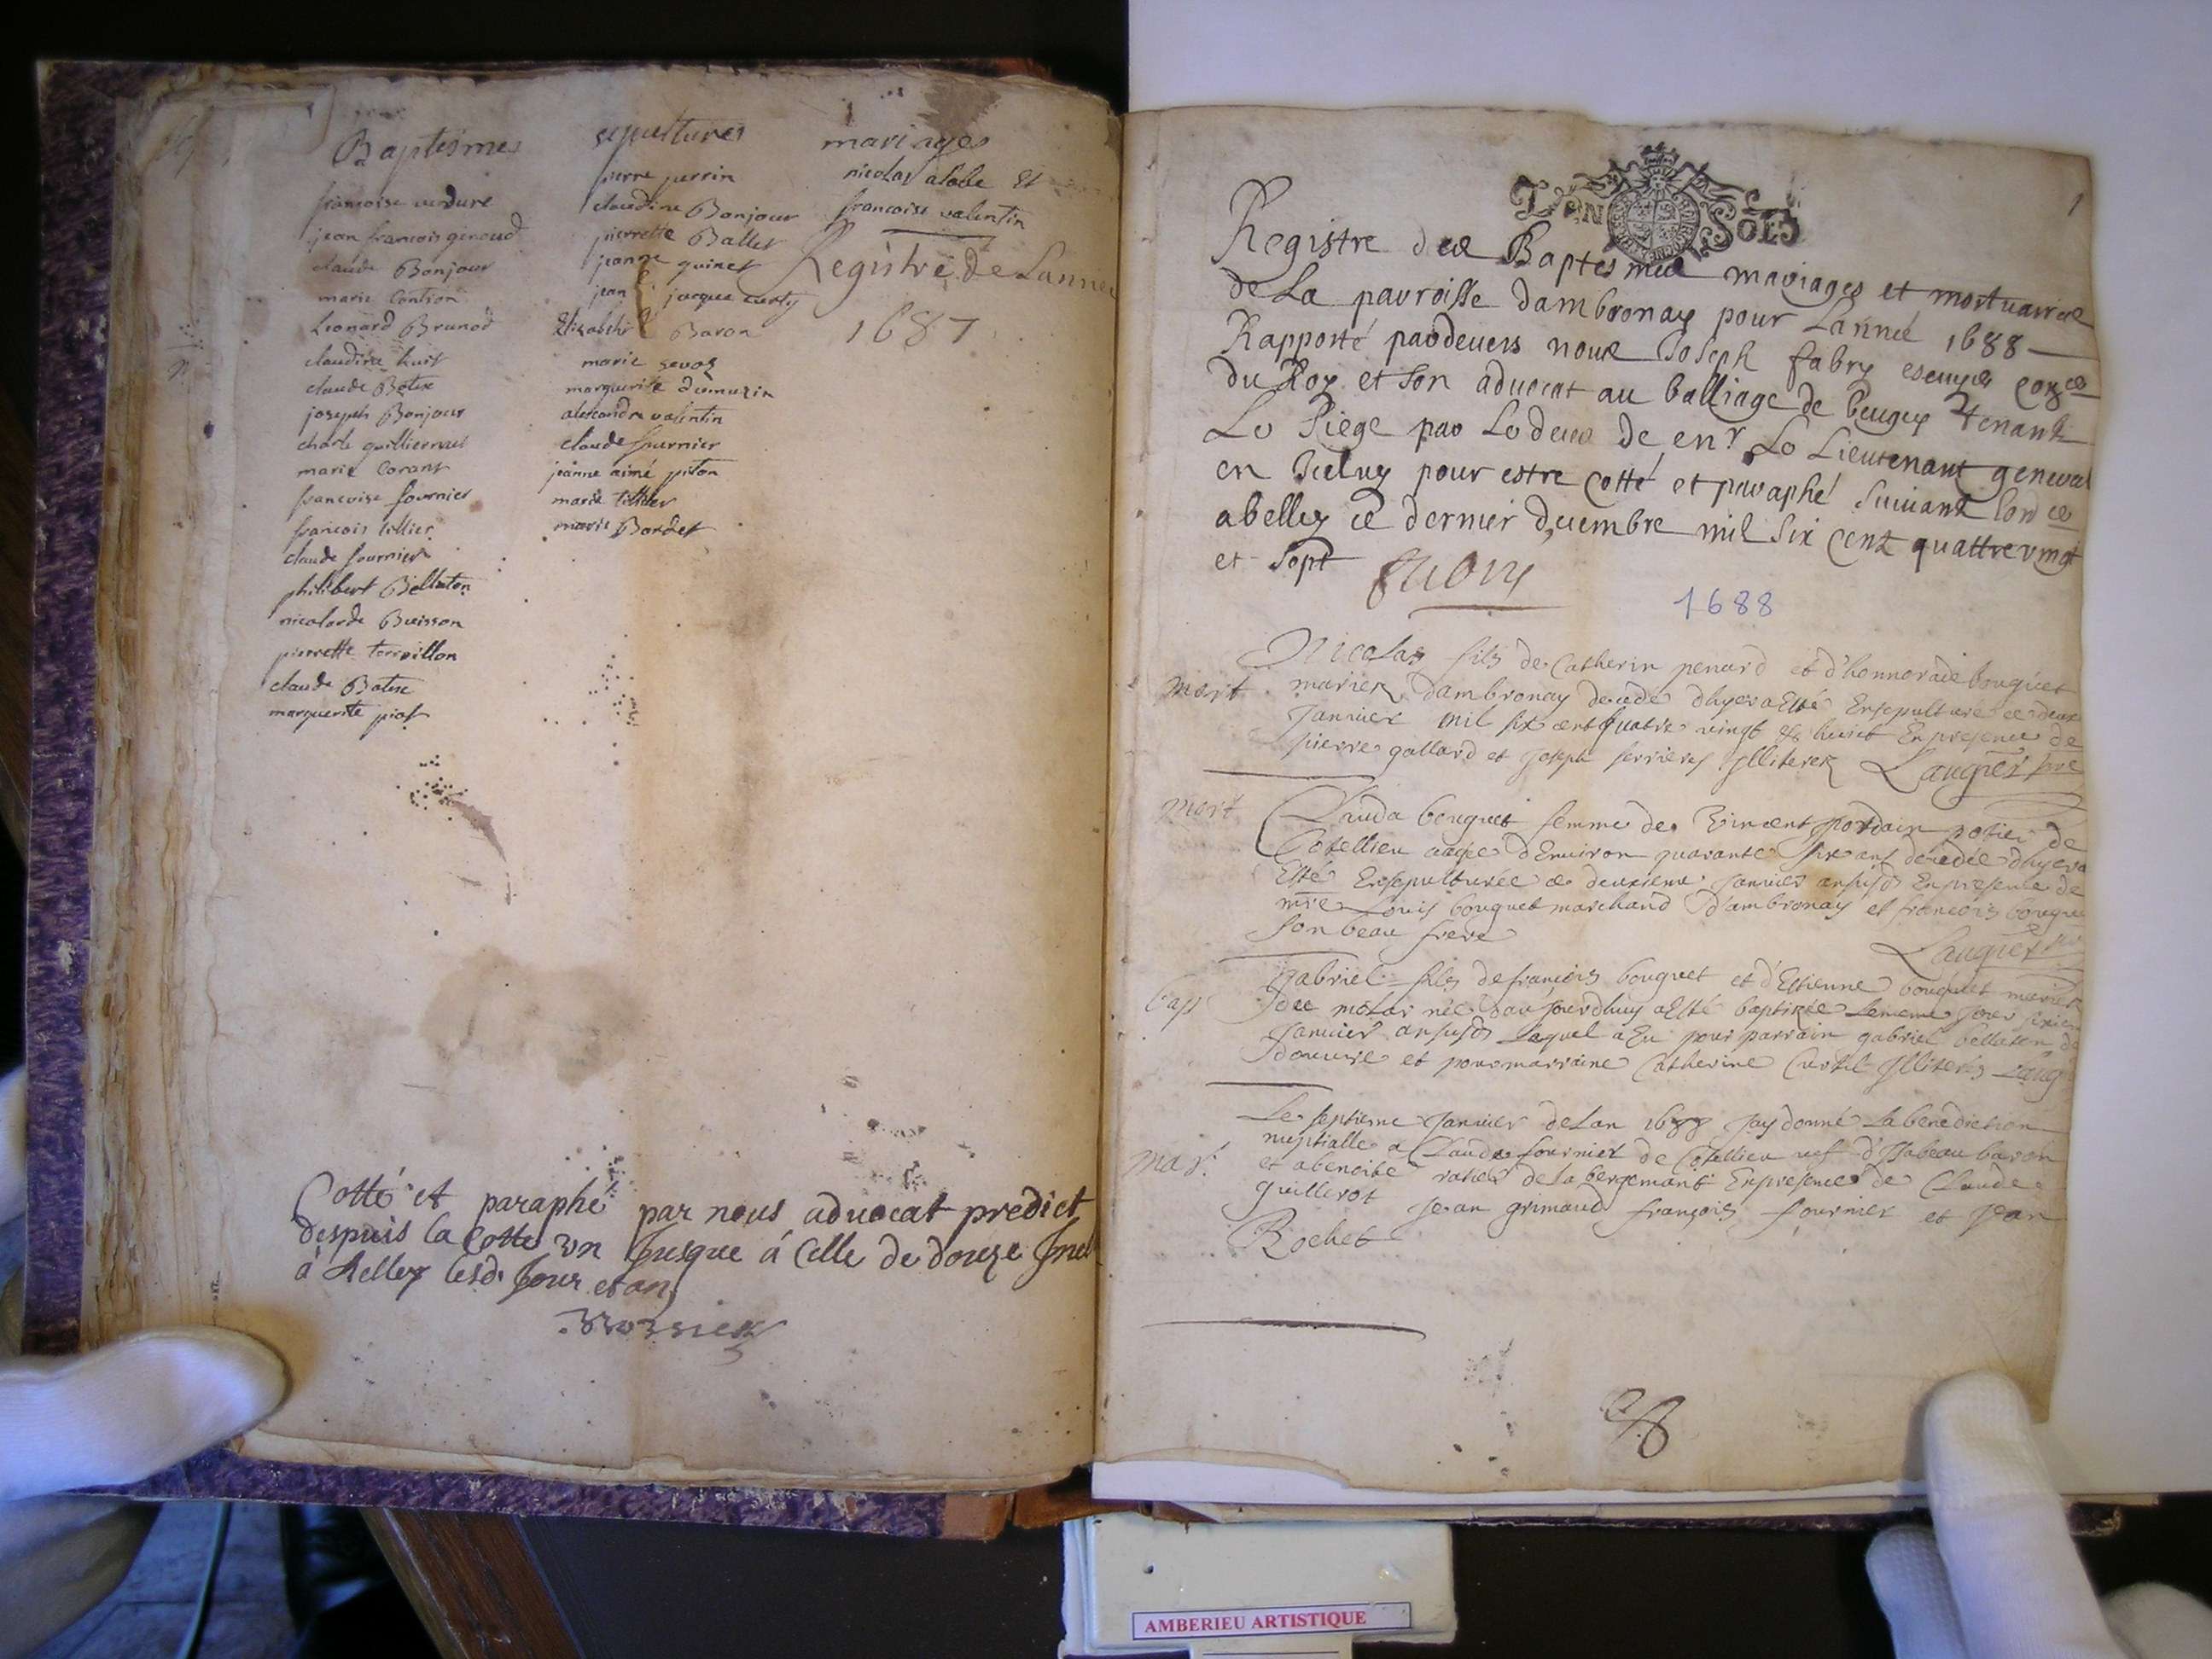 Baptesmes
francoise verdure
jean francois genoud
claude Bonjour
marie
Leonard Brunod
claudine
claude Botex
joseph Bonjour
charle guilliermus
marie Corant
francoise fournier
francois tillier
claude fournier
philibert Bellaton
nicolarde Buisson
pierrette terroillon
claude Botex
marguerite piot
sepultures
pierre perrin
claudine Bonjour
pierrette Ballet
jeanne guinet
jean jacque curty
Elizabeht Baron
marie gevoz
marguerite dumuzin
alexandre valentin
claude fournier
jeanne aimé piton
marie tillier
marie Bordet
mariages
nicolas alobe Et
francoise valentin
Registre de Lannée
1687
Cotté et paraphé par nous aduocat predict
despuis la Cotte vn Jusque á Celle de douze
à Belley lesd. Jour et an
1
SOLS
Registre des Baptesmes mariages et mortuaires
de La parroisse dambronay pour Lannée 1688
Rapporté pardeuers nous Joseph fabry escuyer
du Roy et son aduocat au balliage de beugey tenant
Le Siege par Le deces de en.r Le Lieutenant general
en Iceluy pour estre cotté et paraphé Suiuant lord.ce
abelley ce dernier decembre mil Six Cent quattre vingt
et Sept
1688
mort
Nicolas fils de Catherin penard et d'honnorade bouquet
mariez dambronay decede dhyer a Esté Ensepulture ce deux
Januier mil six cent quatre vingt & huict En presence de
pierre gallard et Joseph ferrieres Illiterez Laugier
mort
Clauda bouquet femme de Vincent potier de
Cotellieu aagée d'Enuiron quarante six ans decedée dhyer a
Esté Ensepulturée ce deuxieme Januier ansusd En presence de
mre Louis bouquet marchand d'ambronay et francois bouquet
son beau frere
Laugier
bap
Gabriel fils de francois bouquet et d'Estienne bouquet mariez
du molar née aujourdhuy a Esté baptizée le meme Jour sixie
Januier ansusd Laquel a Eu pour parrain gabriel bellaton de
douure et pour marraine Catherine Curtil Illiterés Laug
mar.
Le septieme Januier de Lan 1688 Jay donné La benediction
nuptialle a Claude fournier de Cotellieu uef d'Isabeau baron
et abenoite de la bergemant En presence de Claude
guillerot Jean grimaud françois fournier et Jean
Rochet
AMBERIEU ARTISTIQUE